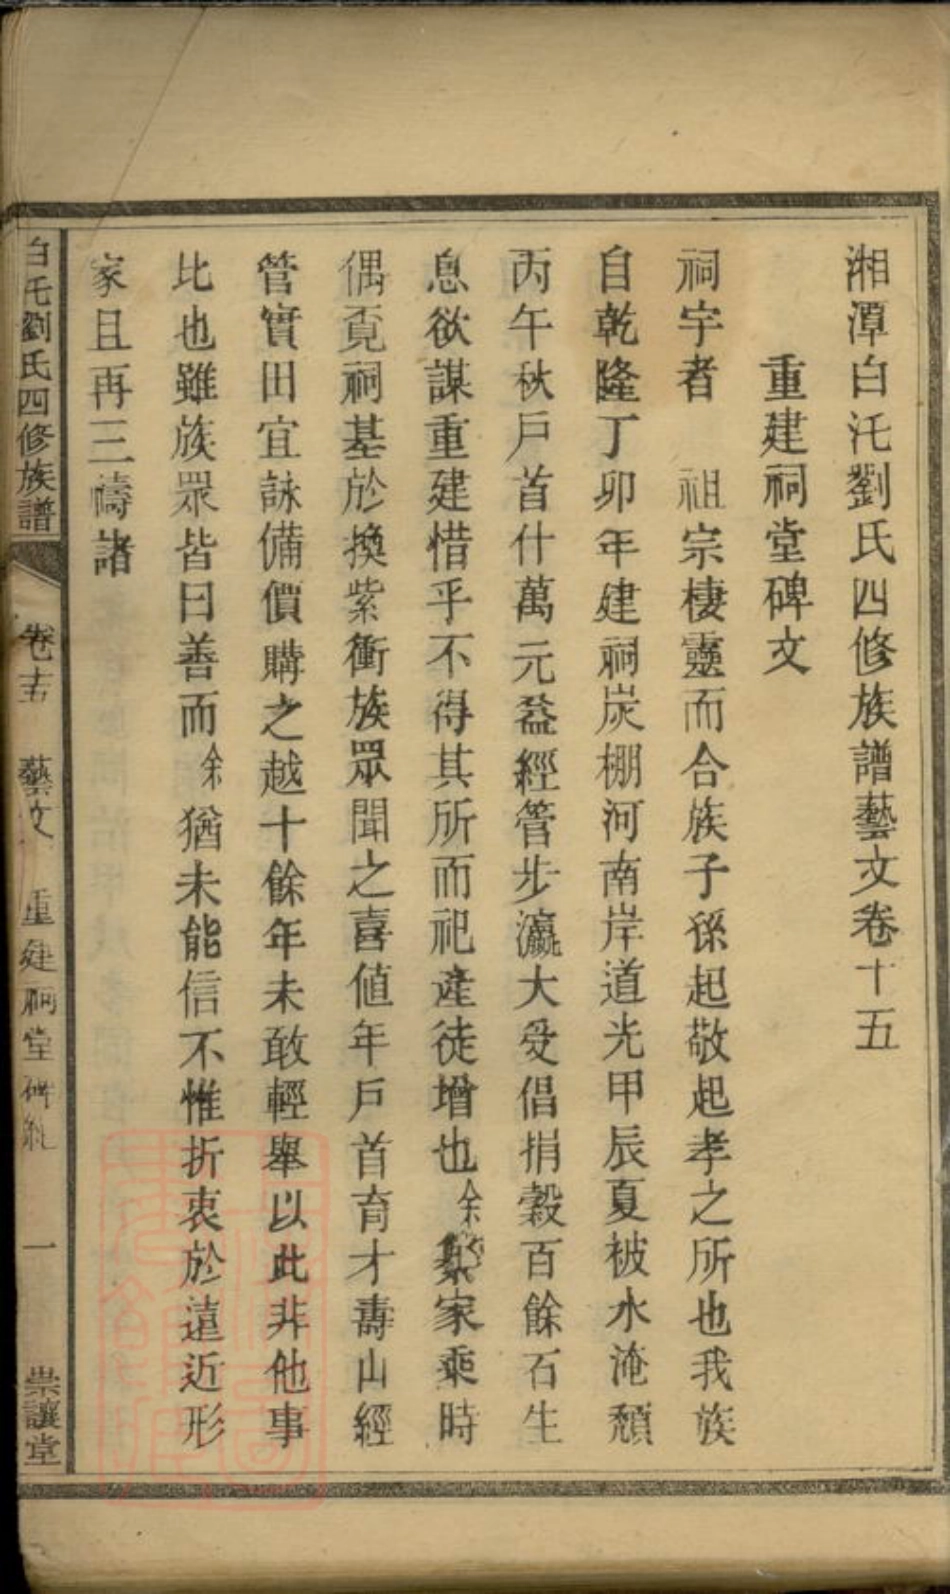 湘潭白汑劉氏四修族譜藝文卷十五
重建祠堂碑文
祠宇者　祖宗棲靈而合族子孫起敬起孝之所也我族
自乾隆丁卯年建祠炭棚河南岸道光甲辰夏被水淹頹
丙午秋戶首什萬元益經管步瀛大受倡捐穀百餘石生
息欲謀重建惜乎不得其所而祀產徒增也余纂家乘時
偶覓祠基於換紫衝族眾聞之喜值年戶首育才壽山經
管實田宜詠備價購之越十餘年未敢輕舉以此非他事
比也雖族眾皆曰善而余猶未能信不惟折衷於遠近形
家且再三禱諸
白汑劉氏四修族譜　卷十五　藝文　重建祠堂碑　一　崇讓堂